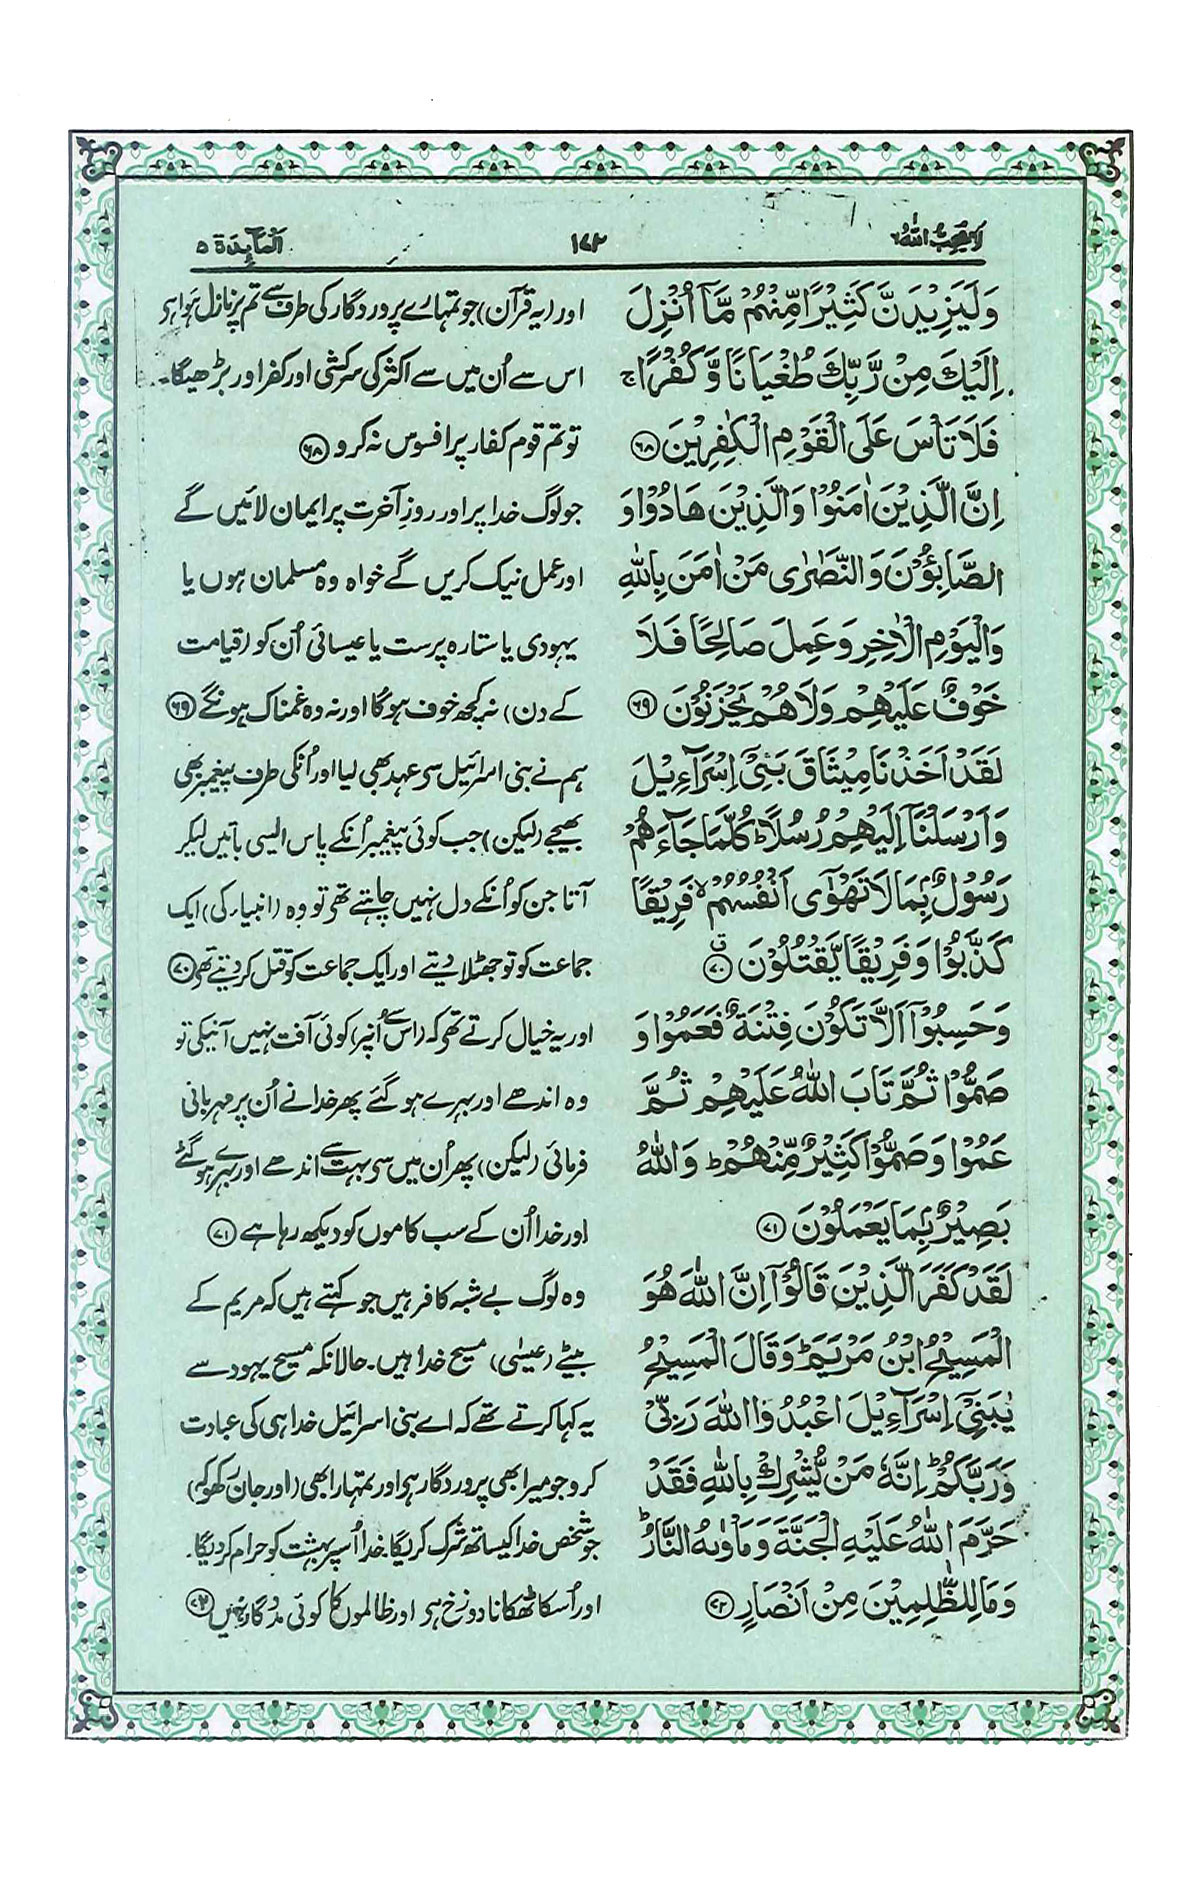 لا یحب اللہ ٦
١٧٢
المآئدة ٥
وَلَيَزِيْدَنَّ كَثِيْرًا مِّنْهُمْ مَّآ اُنْزِلَ
اِلَيْكَ مِنْ رَّبِّكَ طُغْيَانًا وَّكُفْرًا ۚ
فَلَا تَاْسَ عَلَى الْقَوْمِ الْكٰفِرِيْنَ ﴿٦٨﴾
اِنَّ الَّذِيْنَ اٰمَنُوْا وَالَّذِيْنَ هَادُوْا وَ
الصَّابِـُٔوْنَ وَالنَّصٰرٰى مَنْ اٰمَنَ بِاللّٰهِ
وَالْيَوْمِ الْاٰخِرِ وَعَمِلَ صَالِحًا فَلَا
خَوْفٌ عَلَيْهِمْ وَلَا هُمْ يَحْزَنُوْنَ ﴿٦٩﴾
لَقَدْ اَخَذْنَا مِيْثَاقَ بَنِيْٓ اِسْرَآءِيْلَ
وَاَرْسَلْنَآ اِلَيْهِمْ رُسُلًا ؕ كُلَّمَا جَآءَهُمْ
رَسُوْلٌۢ بِمَا لَا تَهْوٰٓى اَنْفُسُهُمْ ۙ فَرِيْقًا
كَذَّبُوْا وَفَرِيْقًا يَّقْتُلُوْنَ ﴿٧٠﴾
وَحَسِبُوْٓا اَلَّا تَكُوْنَ فِتْنَةٌ فَعَمُوْا وَ
صَمُّوْا ثُمَّ تَابَ اللّٰهُ عَلَيْهِمْ ثُمَّ
عَمُوْا وَصَمُّوْا كَثِيْرٌ مِّنْهُمْ ؕ وَاللّٰهُ
بَصِيْرٌۢ بِمَا يَعْمَلُوْنَ ﴿٧١﴾
لَقَدْ كَفَرَ الَّذِيْنَ قَالُوْٓا اِنَّ اللّٰهَ هُوَ
الْمَسِيْحُ ابْنُ مَرْيَمَ ؕ وَقَالَ الْمَسِيْحُ
يٰبَنِيْٓ اِسْرَآءِيْلَ اعْبُدُوا اللّٰهَ رَبِّيْ
وَرَبَّكُمْ ؕ اِنَّهٗ مَنْ يُّشْرِكْ بِاللّٰهِ فَقَدْ
حَرَّمَ اللّٰهُ عَلَيْهِ الْجَنَّةَ وَمَاْوٰىهُ النَّارُ ؕ
وَمَا لِلظّٰلِمِيْنَ مِنْ اَنْصَارٍ ﴿٧٢﴾
اور (یہ قرآن) جو تمہارے پروردگار کی طرف سے تم پر نازل ہوا ہی
اس سے اُن میں سے اکثر کی سرکشی اور کفر اور بڑھیگا۔
تو تم قوم کفار پر افسوس نہ کرو ﴿٦٨﴾
جو لوگ خدا پر اور روزِ آخرت پر ایمان لائیں گے
اور عمل نیک کریں گے خواہ وہ مسلمان ہوں یا
یہودی یا ستارہ پرست یا عیسائی اُن کو (قیامت
کے دن) نہ کچھ خوف ہوگا اور نہ وہ غمناک ہونگے ﴿٦٩﴾
ہم نے بنی اسرائیل سی عہد بھی لیا اور اُنکی طرف پیغمبر بھی
بھیجے (لیکن) جب کوئی پیغمبر اُنکے پاس ایسی باتیں لیکر
آتا جن کو اُنکے دل نہیں چاہتے تھی تو وہ (انبیاء کی) ایک
جماعت کو تو جھٹلا دیتے اور ایک جماعت کو قتل کر دیتے تھی ﴿٧٠﴾
اور یہ خیال کرتے تھی کہ (اس سے اُنپر) کوئی آفت نہیں آنیکی تو
وہ اندھے اور بہرے ہو گئے پھر خدا نے اُن پر مہربانی
فرمائی (لیکن) پھر اُن میں سی بہت سے اندھے اور بہرے ہو گئے
اور خدا اُن کے سب کاموں کو دیکھ رہا ہے ﴿٧١﴾
وہ لوگ بے شبہ کافر ہیں جو کہتے ہیں کہ مریم کے
بیٹے (عیسٰی) مسیح خدا ہیں۔ حالانکہ مسیح یہود سے
یہ کہا کرتے تھے کہ اے بنی اسرائیل خدا ہی کی عبادت
کرو جو میرا بھی پروردگار ہی اور تمہارا بھی (اور جان رکھو کہ)
جو شخص خدا کیساتھ شرک کریگا۔ خدا اُسپر بہشت کو حرام کر دیگا۔
اور اُسکا ٹھکانا دوزخ ہی اور ظالموں کا کوئی مددگار نہیں ﴿٧٢﴾